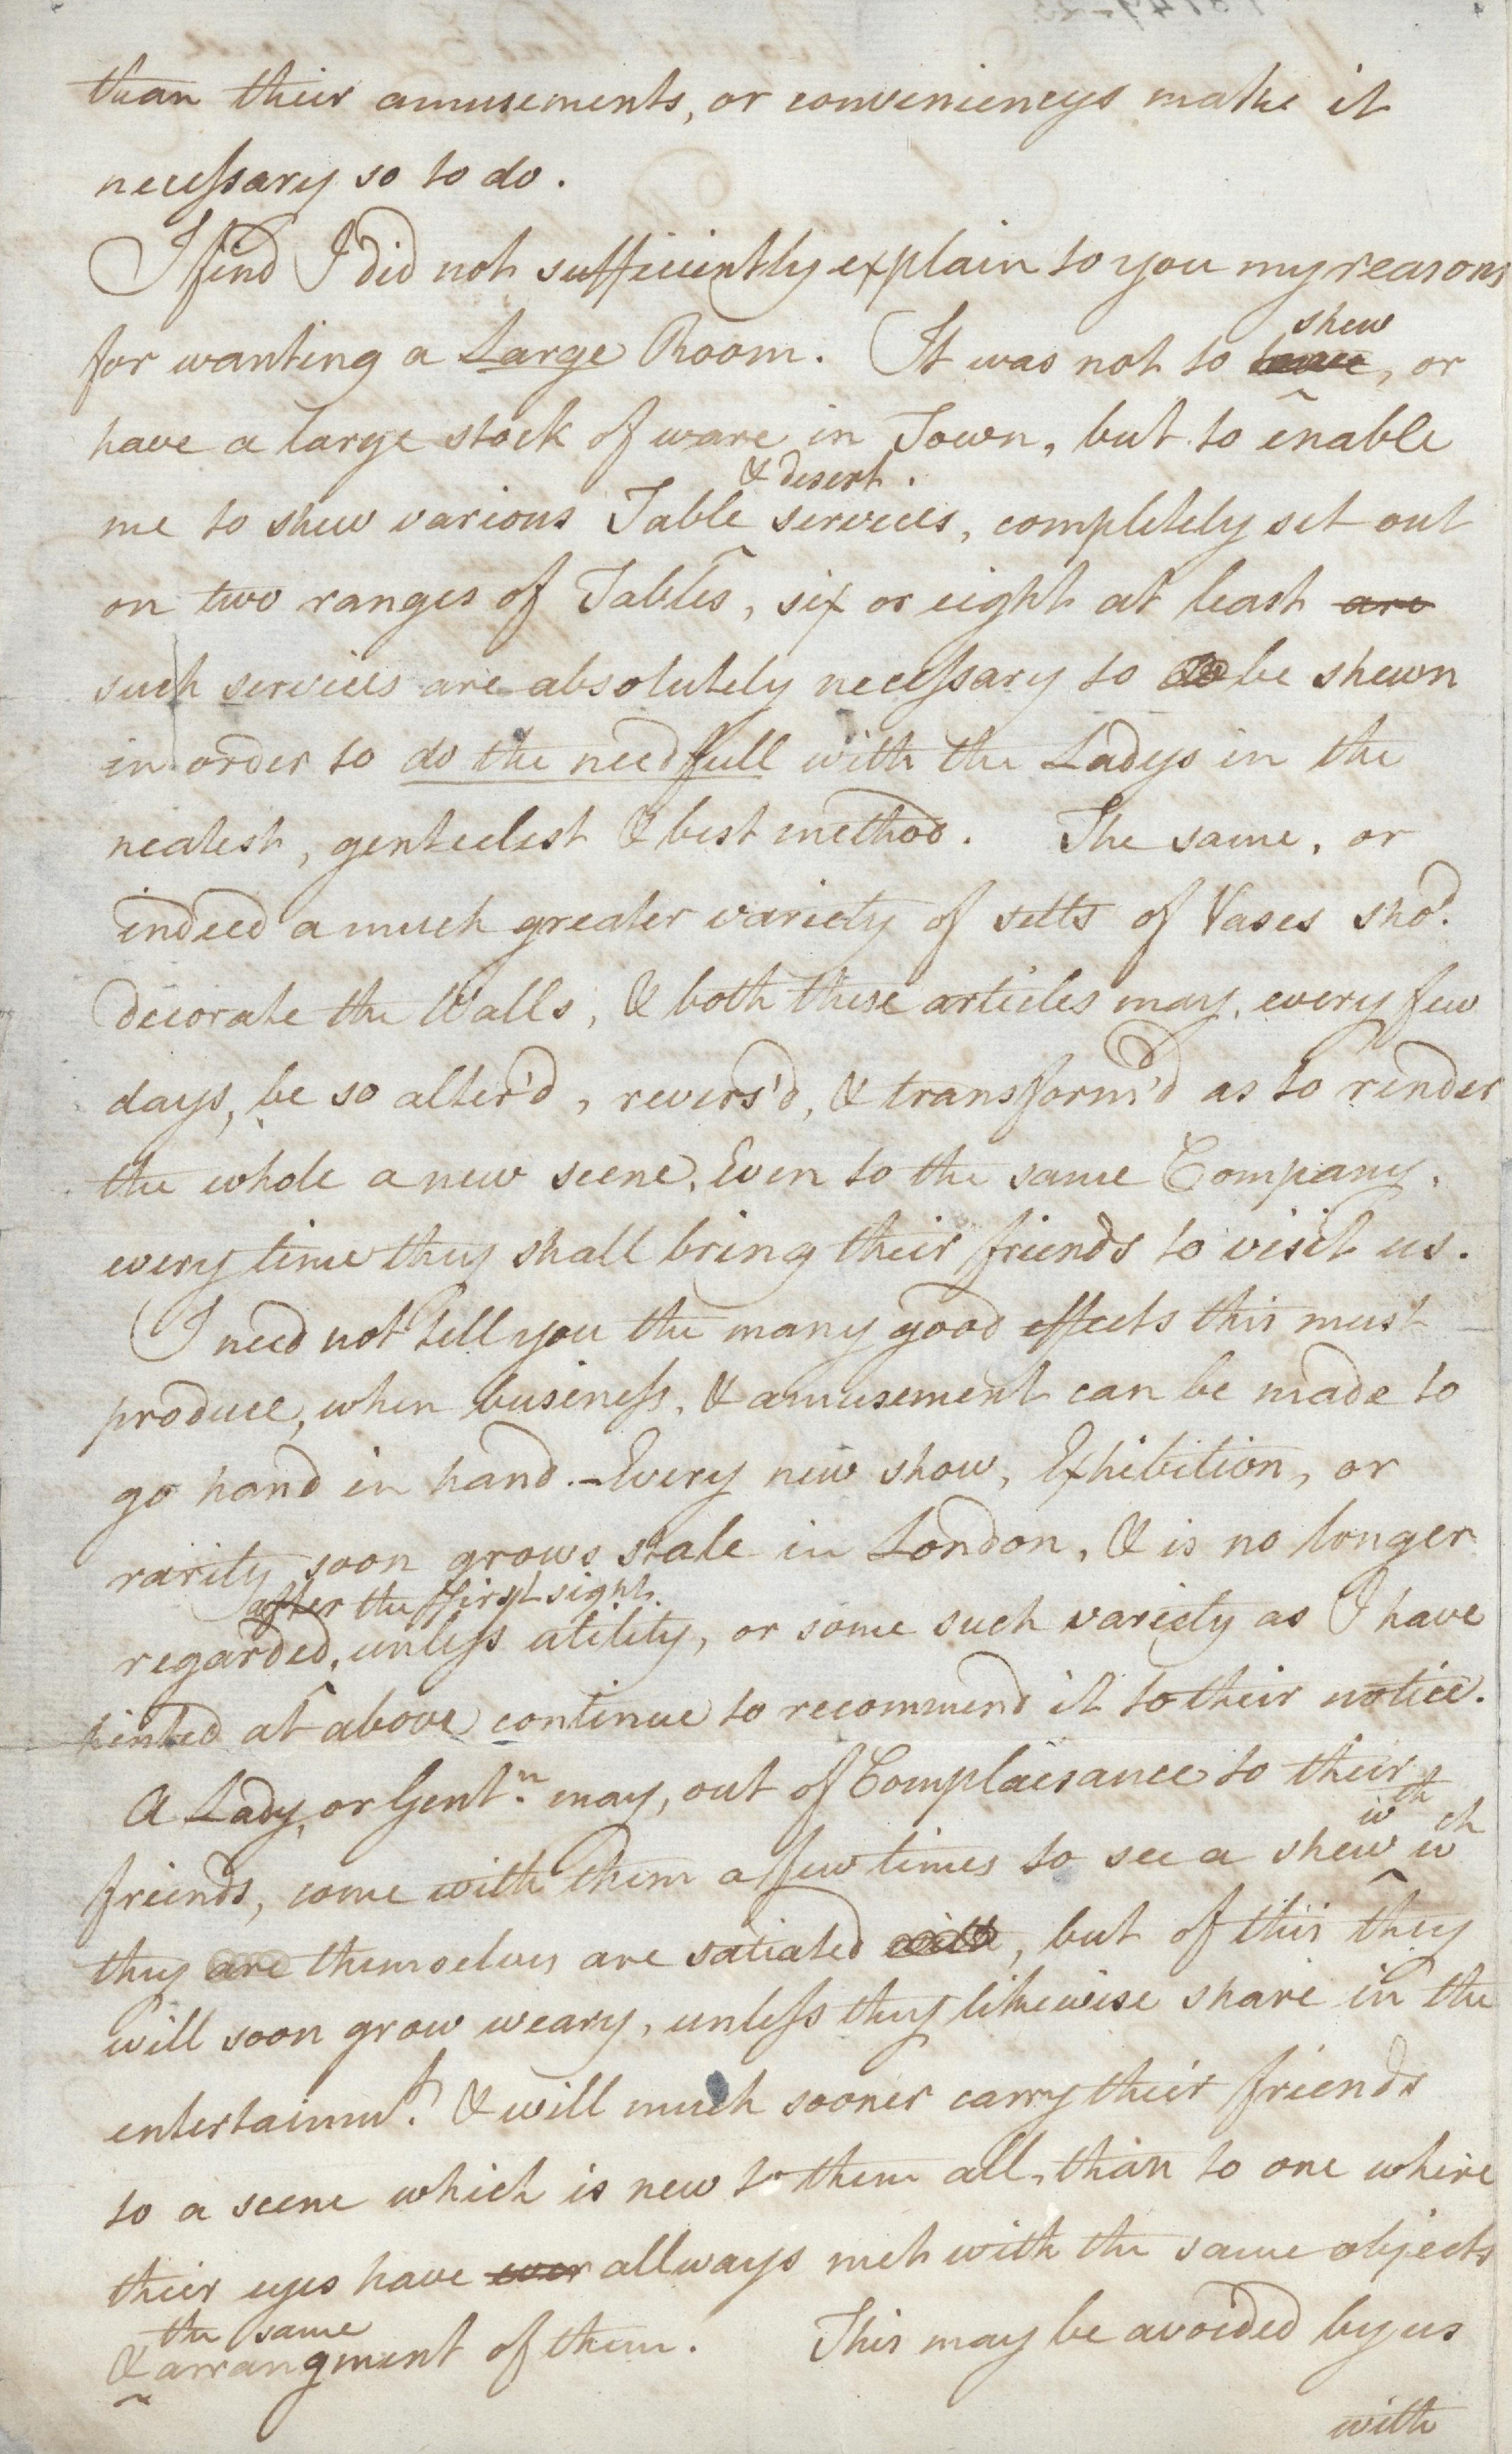 than their amusements, or conveniencys make it
necessary so to do.
I find I did not sufficiently explain to you my reasons
for wanting a Large Room. It was not to shew, or
have a large stock of ware in Town, but to enable
me to shew various Table & desert services, completely set out
on two ranges of Tables, six or eight at least are
such services are absolutely necessary to do be shewn
in order to do the needfull with the Ladys in the
neatest, genteelest & best method. The same, or
indeed a much greater variety of setts of Vases sho.d
decorate the Walls, & both these articles may, every few
days, be so alter'd, revers'd, & transform'd as to render
the whole a new scene, Even to the same Company,
every time they shall bring their friends to visit us.
I need not tell you the many good effects this must
produce, when business, & amusement can be made to
go hand in hand. – Every new show, Exhibition, or
rarity soon grows stale in London, & is no longer
regarded, after the first sight, unless utility, or some such variety as I have
hinted at above continue to recommend it to their notice.
A Lady, or Gent.n may, out of Complaisance to their
friends, come with them a few times to see a shew wch wch
they are themselves are satiated with, but of this they
will soon grow weary, unless they likewise share in the
entertainm.t & will much sooner carry their friends
to a scene which is new to them all, than to one where
their eyes have ever allways met with the same objects
& the same arrangment of them. This may be avoided by us
with